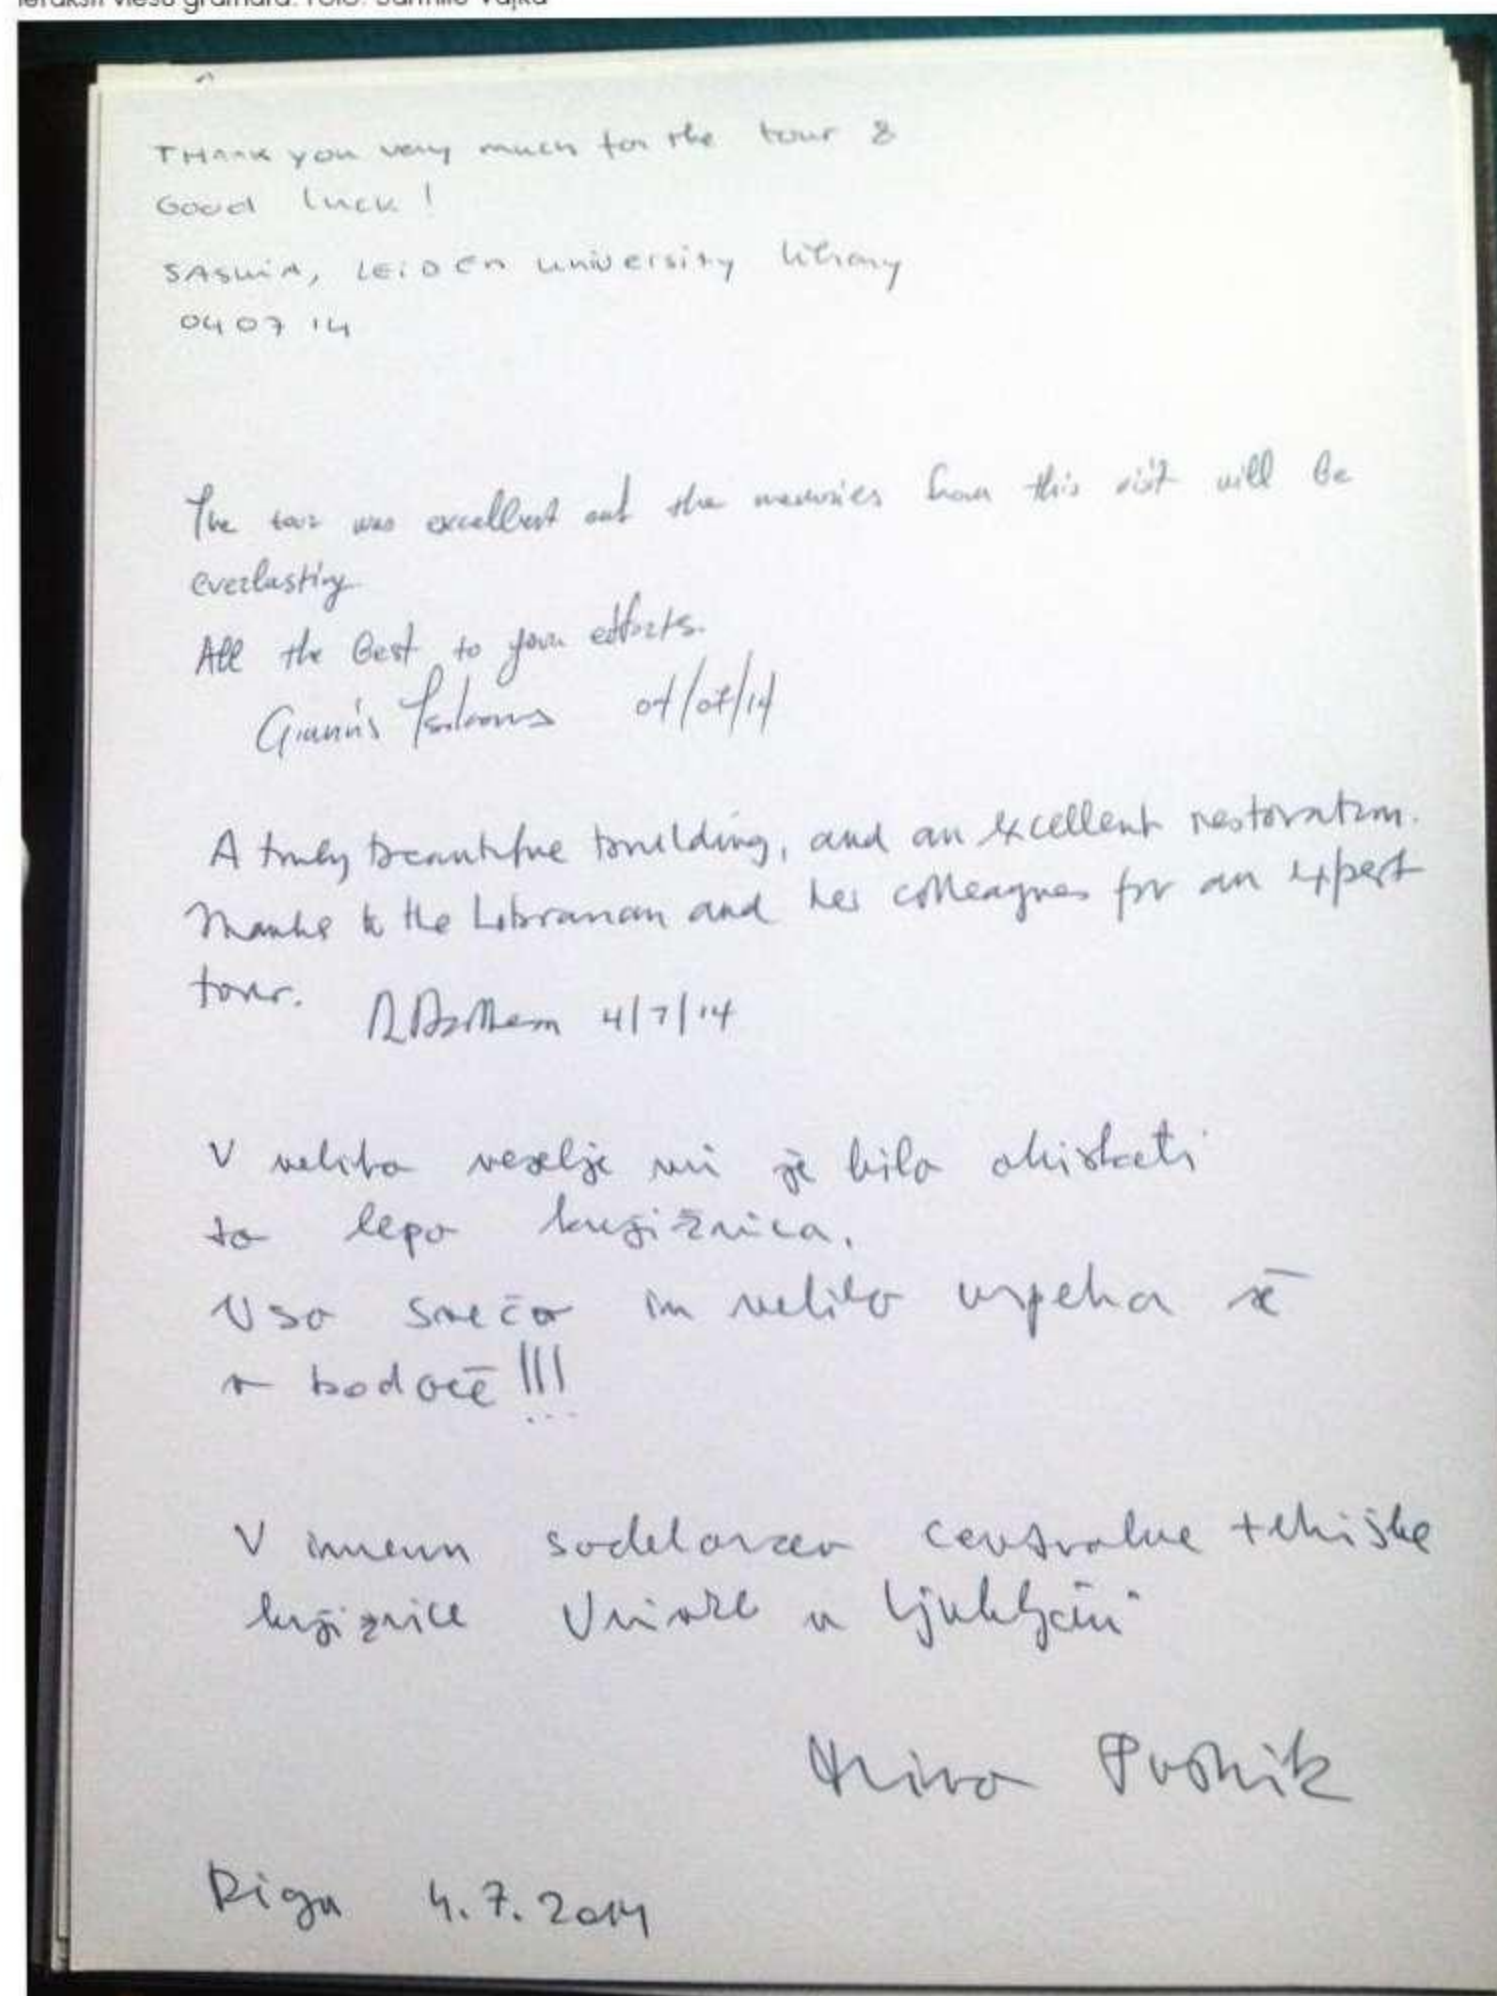 Ieraksti viesu grāmatā. Foto: Sarmīte Vaļka
THANK you very much for the tour &
Good luck!
SASKIA, LEIDEN University library
04 07 14
The tour was excellent and the memories from this visit will be
everlasting
All the best to your efforts.
Giannis 04/07/14
A truly beautiful building, and an excellent restoration.
Thanks to the Librarian and her colleagues for an expert
tour.
4/7/14
V veliko veselje mi je bilo obiskati
to lepo knjižnico.
Vso srečo in veliko uspeha še
v bodoče!!!
V imenu sodelavcev centralne tehiške
knjižnice Univerze v Ljubljani
Mira
Riga 4.7.2014